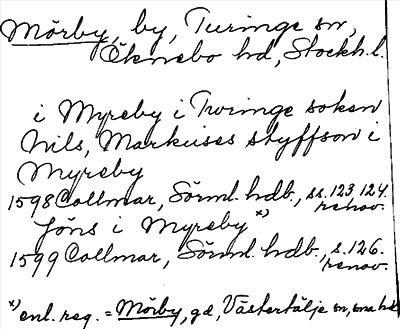 Mörby, by, Turinge sn,
Öknebo hd, Stockh. l.
i Myreby i Twringe soken
Nils, Markuses styffson i
Myreby
1598 Collmar, Sörml. hdb., ss. 123 124.
renov.
Jöns i Myreby x)
1599 Collmar, Sörml. hdb., s. 126.
renov.
x) enl. reg. = Mörby, gd, Västertälje sn, sma hd